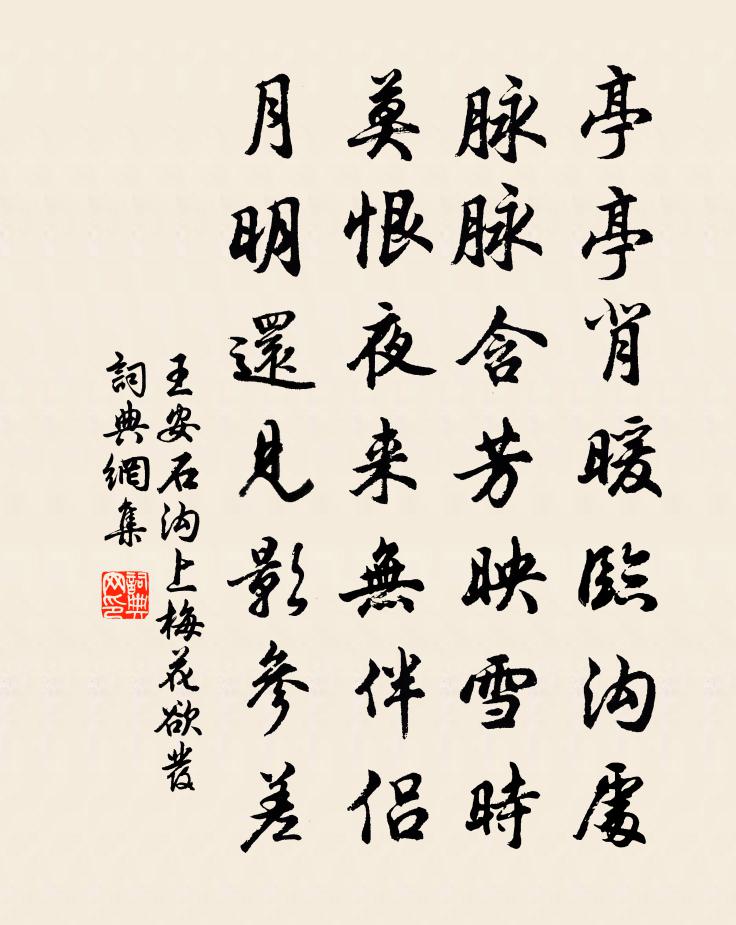 亭亭背暖臨沟處
脉脉含芳映雪時
莫恨夜来無伴侣
月明還見影參差
王安石沟上梅花欲發
詞典網集
詞典网印